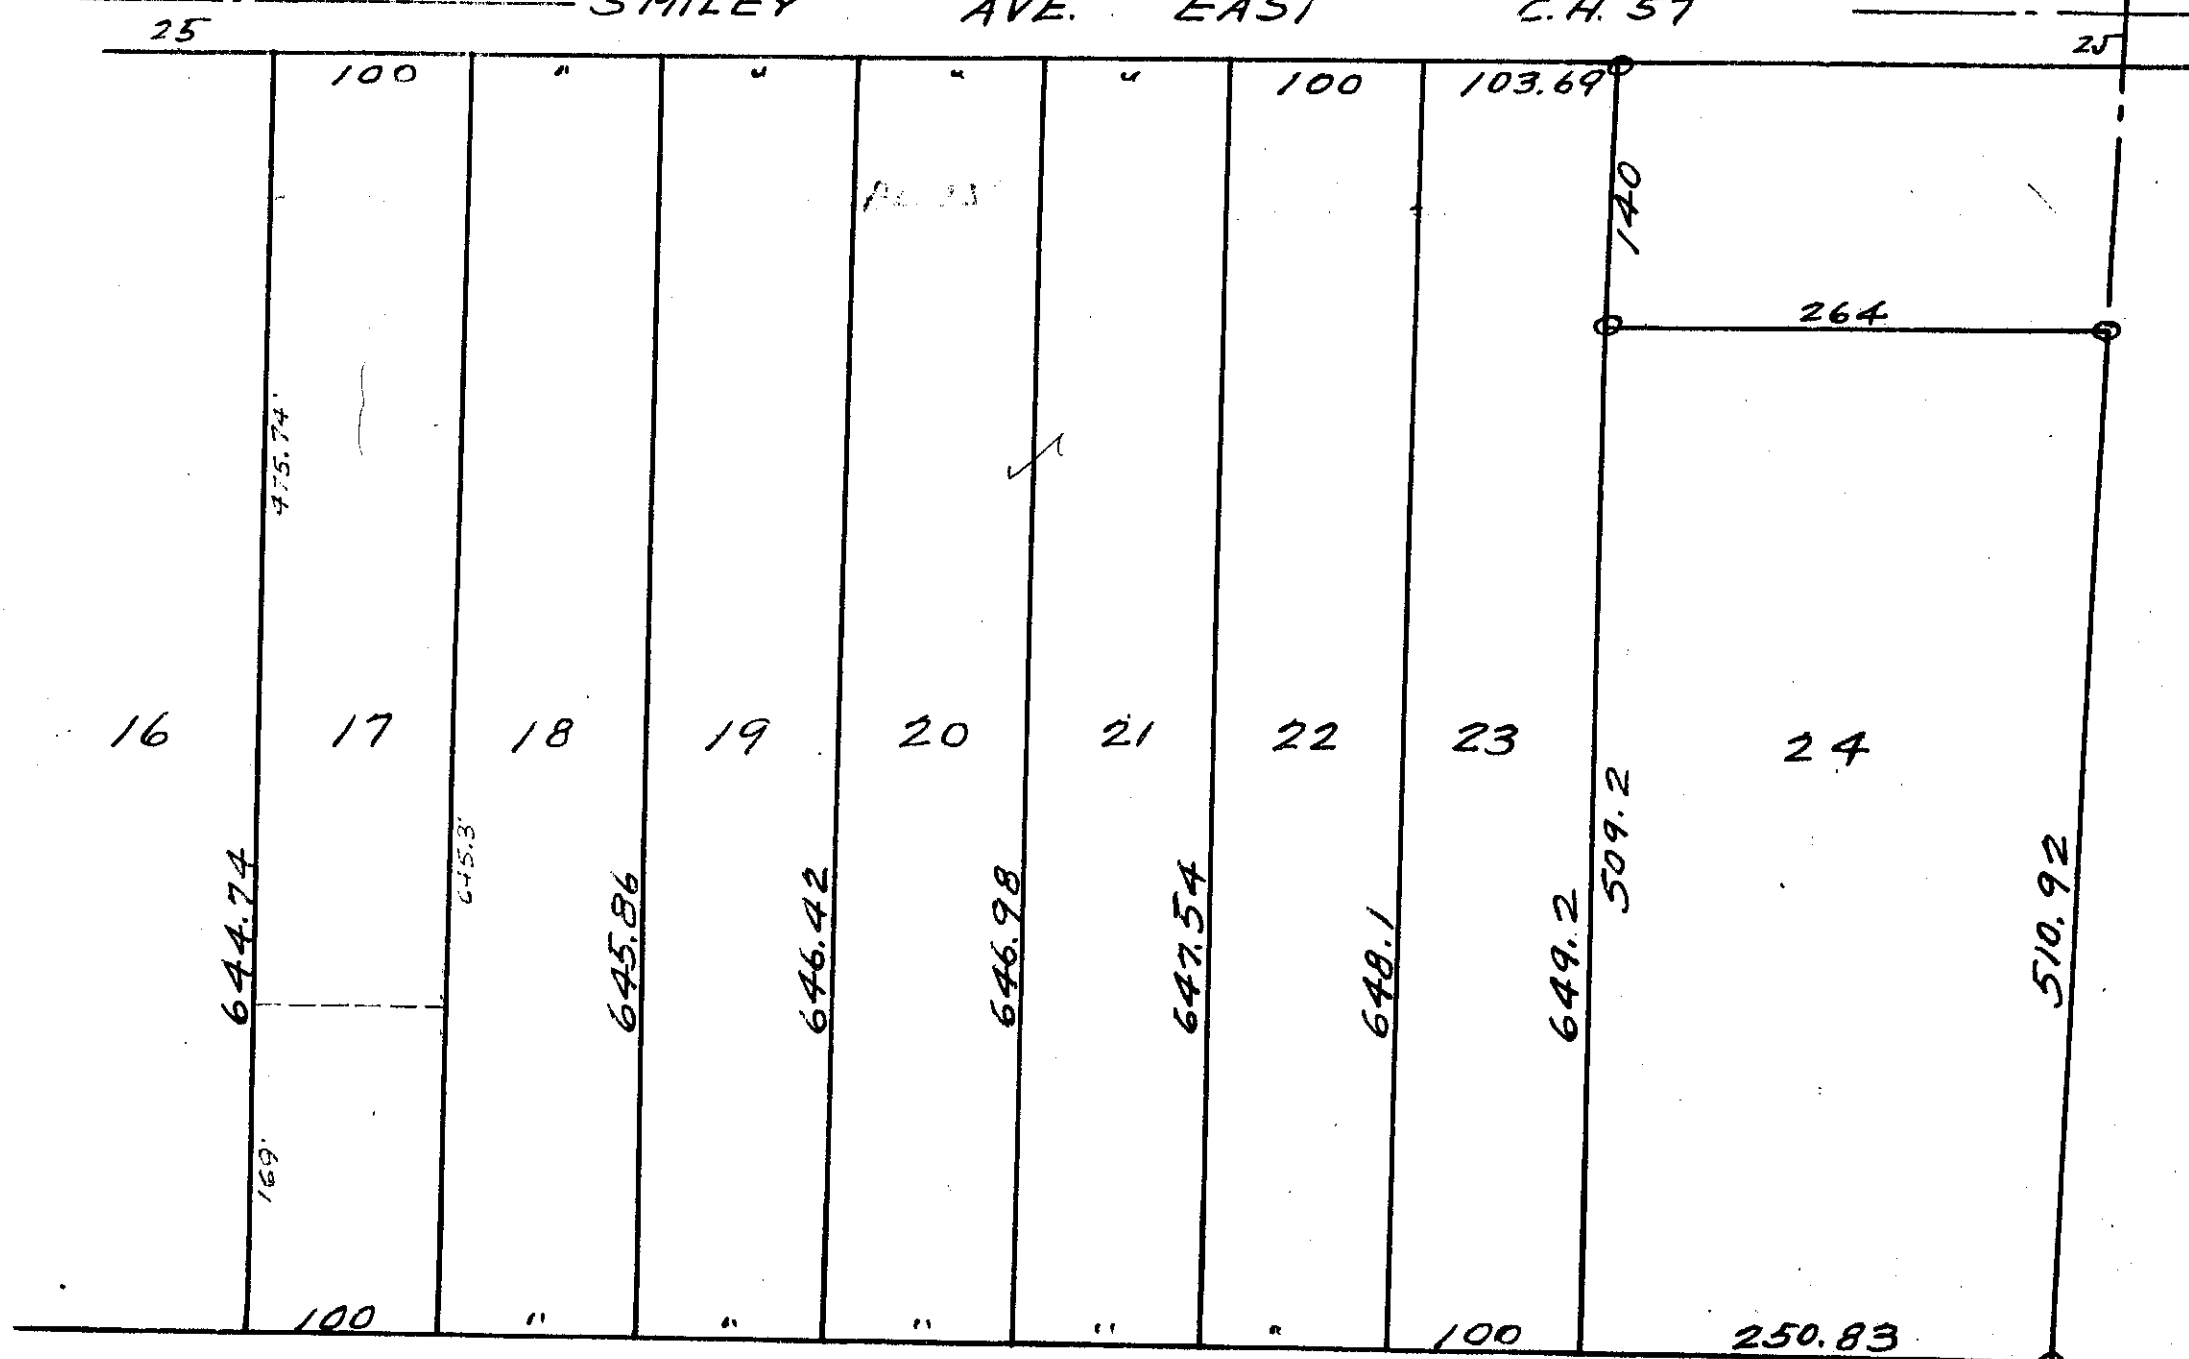 SMILEY AVE. EAST C.H. 57
25 25
100 " " " " 100 103.69
140
264
475.74'
16 17 18 19 20 21 22 23 24
509.2
645.3'
644.74 645.86 646.42 646.98 647.54 648.1 649.2 510.92
169'
100 " " " " " 100 250.83